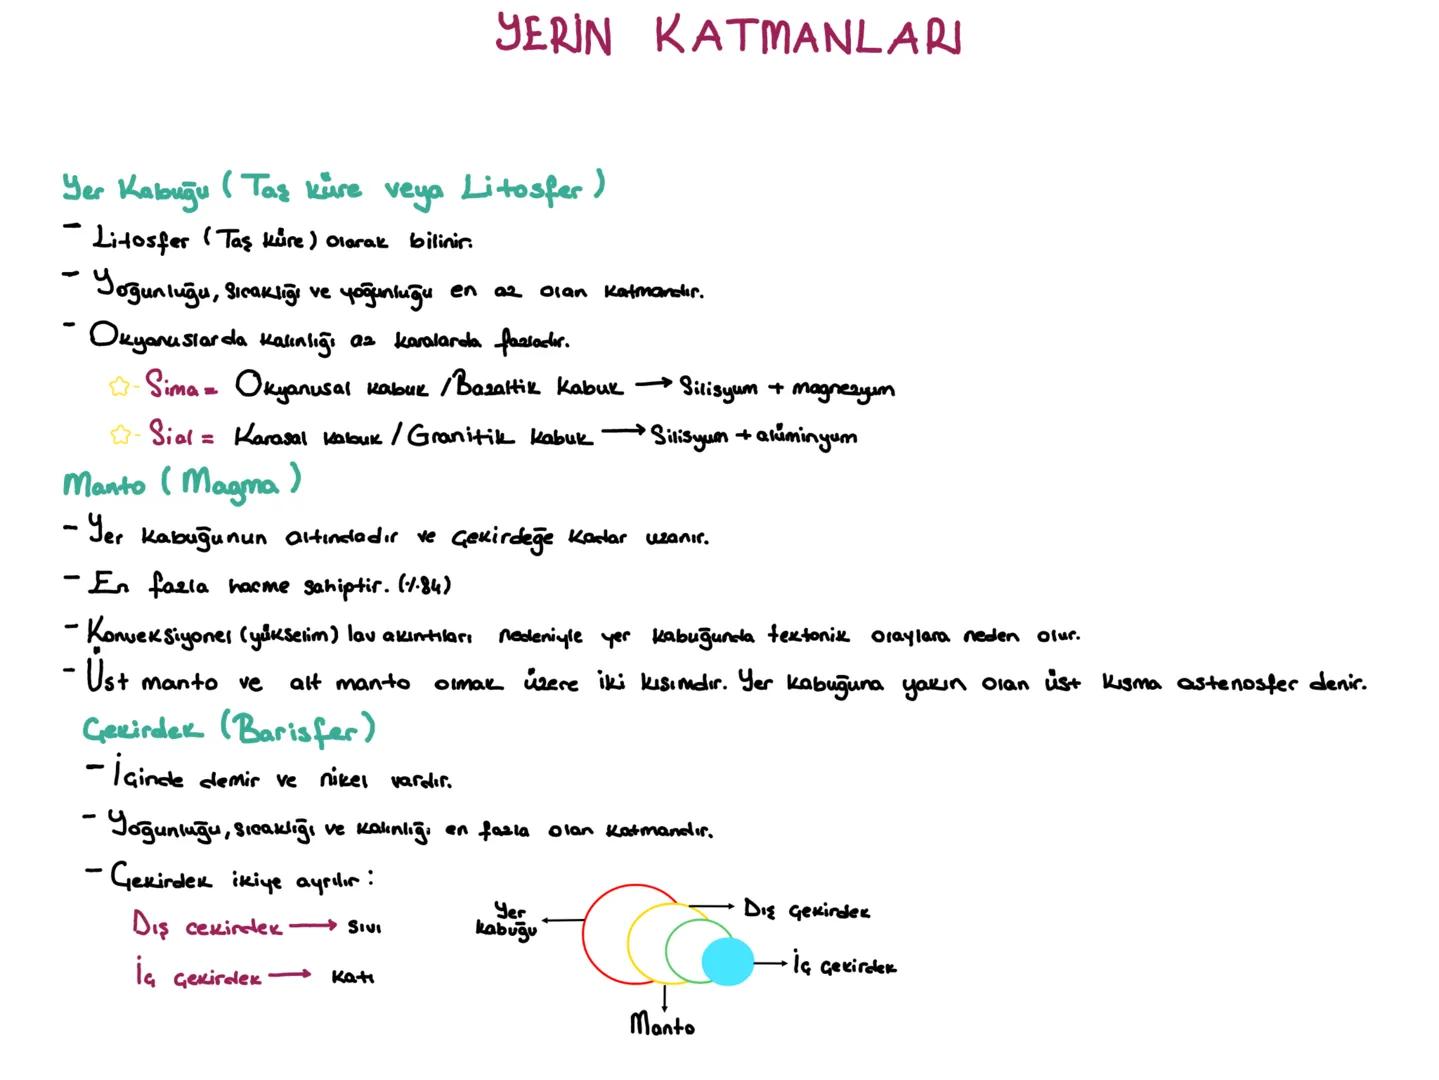 YERİN KATMANLARI
Yer Kabuğu (Taş küre veya Litosfer)
- Litosfer (Taş küre) olarak bilinir.
- Yoğunluğu, sıcaklığı ve yoğunluğu en az olan katmandır.
- Okyanuslarda kalınlığı az karalarda fazladır.
☆- Sima = Okyanusal kabuk / Bazaltik kabuk → Silisyum + magnezyum
☆- Sial = Karasal kabuk / Granitik kabuk → Silisyum + alüminyum
Manto (Magma)
- Yer kabuğunun altındadır ve çekirdeğe kadar uzanır.
- En fazla hacme sahiptir. (%84)
- Konveksiyonel (yükselim) lav akıntıları nedeniyle yer kabuğunda tektonik olaylara neden olur.
- Üst manto ve alt manto olmak üzere iki kısımdır. Yer kabuğuna yakın olan üst kısma astenosfer denir.
Çekirdek (Barisfer)
- İçinde demir ve nikel vardır.
- Yoğunluğu, sıcaklığı ve kalınlığı en fazla olan katmandır.
- Çekirdek ikiye ayrılır:
Dış cekirdek → sıvı
İç çekirdek → katı
Yer
kabuğu
Dış çekirdek
İç çekirdek
Manto